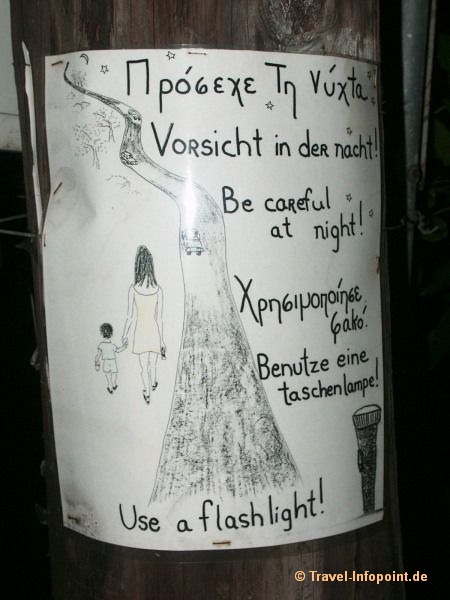 Πρόσεχε Τη νύχτα
Vorsicht in der nacht!
Be careful
at night!
Χρησιμοποίησε
φακό!
Benutze eine
taschenlampe!
Use a flashlight!
© Travel-Infopoint.de